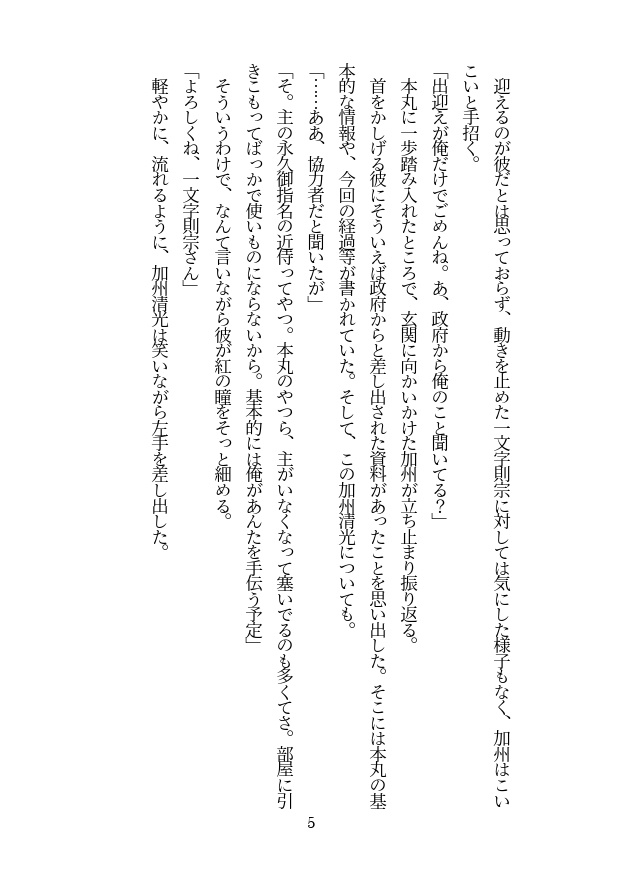 迎えるのが彼だとは思っておらず、動きを止めた一文字則宗に対しては気にした様子もなく、加州はこい
こいと手招く。
「出迎えが俺だけでごめんね。あ、政府から俺のこと聞いてる？」
本丸に一歩踏み入れたところで、玄関に向かいかけた加州が立ち止まり振り返る。
首をかしげる彼にそういえば政府からと差し出された資料があったことを思い出した。そこには本丸の基
本的な情報や、今回の経過等が書かれていた。そして、この加州清光についても。
「……ああ、協力者だと聞いたが」
「そ。主の永久御指名の近侍ってやつ。本丸のやつら、主がいなくなって塞いでるのも多くてさ。部屋に引
きこもってばっかで使いものにならないから。基本的には俺があんたを手伝う予定」
そういうわけで、なんて言いながら彼が紅の瞳をそっと細める。
「よろしくね、一文字則宗さん」
軽やかに、流れるように、加州清光は笑いながら左手を差し出した。
5